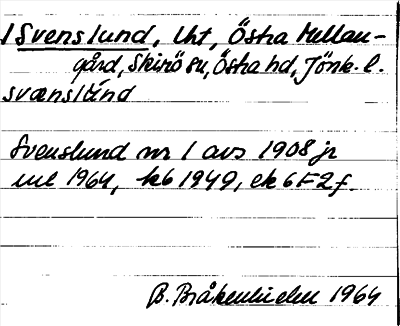 1 Svenslund, lht, Östra Mellan-
gård, Skirö sn, Östra hd, Jönk. l.
svænslúnd
Svenslund nr 1 avs 1908 jr
1964, kb 1949, ek 6F2f.
B. Bråkenhielm 1964